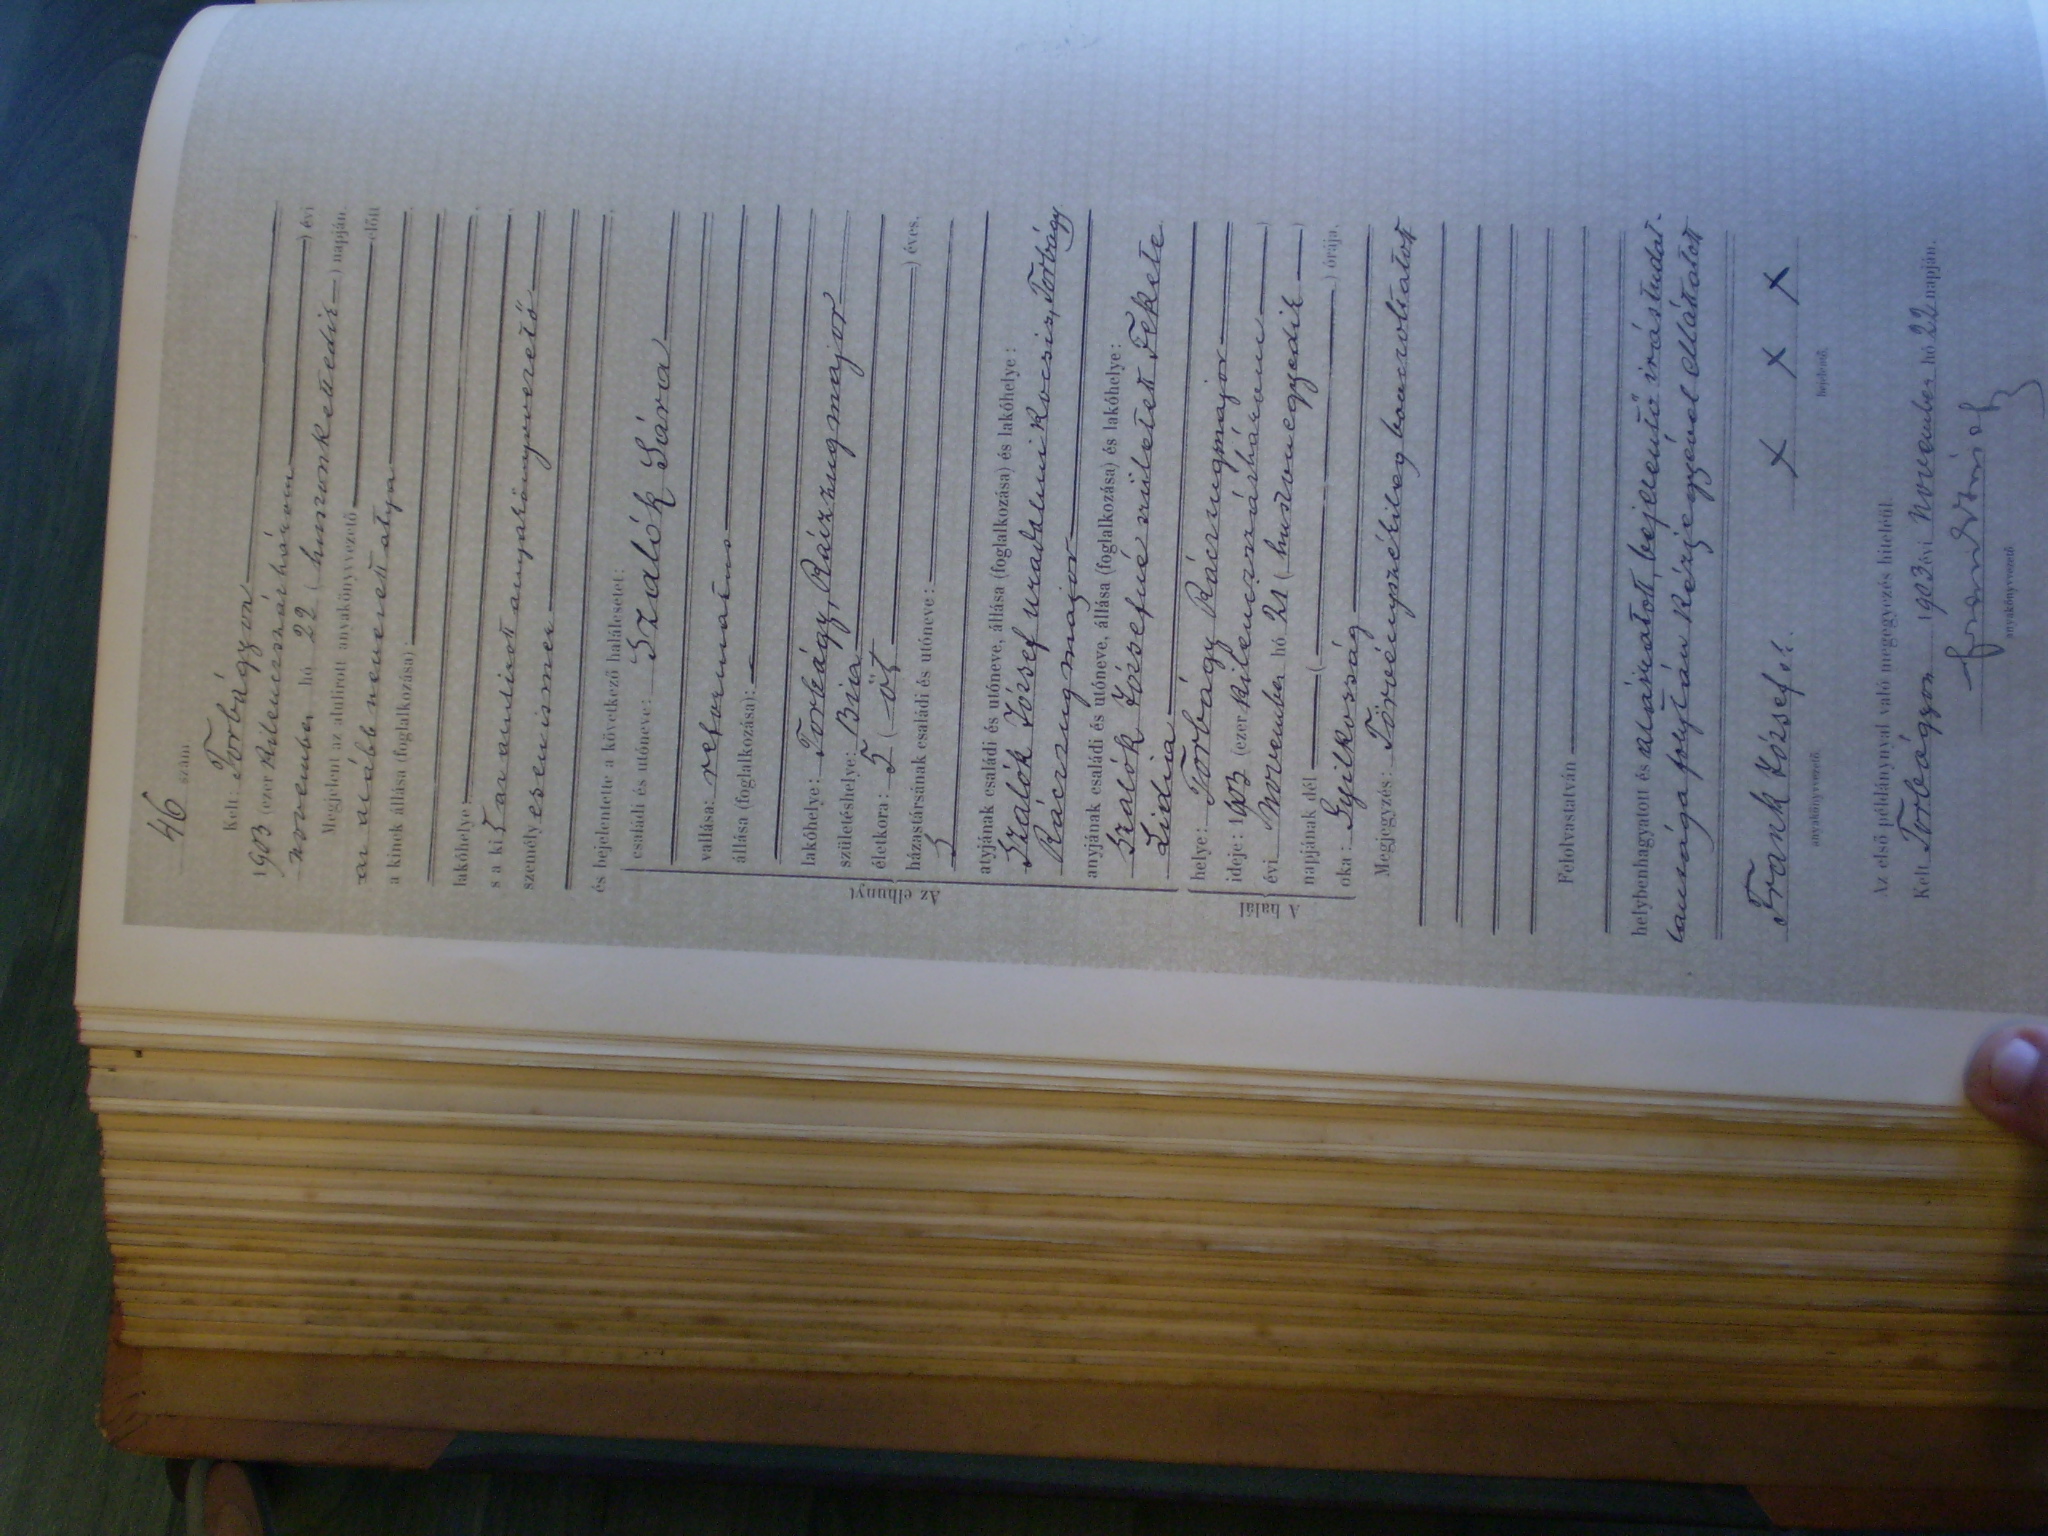 46 szám
Kelt: Torbágyon
1903 (ezer kilenczszázhárom) évi
november hó 22 (huszonkettedik) napján.
Megjelent az alulirott anyakönyvvezető előtt
az alább nevezett atya
a kinek állása (foglalkozása)
lakóhelye:
s a kit az alulirott anyakönyvvezető
személyesen ismer
és bejelentette a következő halálesetet:
Az elhunyt
családi és utóneve: Szalók Sára
vallása: református
állása (foglalkozása): —
lakóhelye: Torbágy, Ráczugmajor
születéshelye: Bia
életkora: 5 (öt) éves.
házastársának családi és utóneve:
atyjának családi és utóneve, állása (foglalkozása) és lakóhelye:
Szalók József uradalmi kocsis, Torbágy
Ráczugmajor
anyjának családi és utóneve, állása (foglalkozása) és lakóhelye:
Szalók Józsefné született Fekete
Lidia
A halál
helye: Torbágy Ráczugmajor
ideje: 1903 (ezer kilenczszázhárom)
évi November hó 21 (huszonegyedik)
napjának dél ( ) órája.
oka: Gyilkosság
Megjegyzés: Törvényszékileg bonczoltatott
Felolvastatván
helybenhagyatott és aláiratott, bejelentő irástudat-
lansága folytán kézjegyével elláttatott
Frank József s.k. x x x
anyakönyvvezető. bejelentő.
Az első példánynyal való megegyezés hiteléül.
Kelt Torbágyon 1903 évi November hó 22 napján.
Frank József
anyakönyvvezető